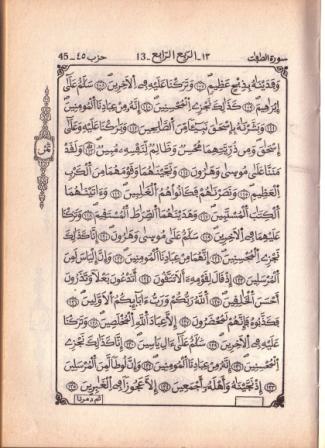 سورة الصافات ١٣-الربع الرابع-13 حزب ٤٥-45
وَفَدَيْنَٰهُ بِذِبْحٍ عَظِيمٍ وَتَرَكْنَا عَلَيْهِ فِي الَاخِرِينَ سَلَٰمٌ عَلَىٰٓ
إِبْرَٰهِيمَ كَذَٰلِكَ نَجْزِي الْمُحْسِنِينَ إِنَّهُ مِنْ عِبَادِنَا الْمُومِنِينَ
وَبَشَّرْنَٰهُ بِإِسْحَٰقَ نَبِيئًا مِّنَ الصَّٰلِحِينَ وَبَٰرَكْنَا عَلَيْهِ وَعَلَىٰٓ
إِسْحَٰقَ وَمِن ذُرِّيَّتِهِمَا مُحْسِنٌ وَظَالِمٌ لِّنَفْسِهِ مُبِينٌ وَلَقَدْ
مَنَنَّا عَلَىٰ مُوسَىٰ وَهَٰرُونَ وَنَجَّيْنَٰهُمَا وَقَوْمَهُمَا مِنَ الْكَرْبِ
الْعَظِيمِ وَنَصَرْنَٰهُمْ فَكَانُوا هُمُ الْغَٰلِبِينَ وَءَاتَيْنَٰهُمَا
الْكِتَٰبَ الْمُسْتَبِينَ وَهَدَيْنَٰهُمَا الصِّرَٰطَ الْمُسْتَقِيمَ وَتَرَكْنَا
عَلَيْهِمَا فِي الَاخِرِينَ سَلَٰمٌ عَلَىٰ مُوسَىٰ وَهَٰرُونَ إِنَّا كَذَٰلِكَ
نَجْزِي الْمُحْسِنِينَ إِنَّهُمَا مِنْ عِبَادِنَا الْمُومِنِينَ وَإِنَّ إِلْيَاسَ لَمِنَ
الْمُرْسَلِينَ إِذْ قَالَ لِقَوْمِهِ أَلَا تَتَّقُونَ أَتَدْعُونَ بَعْلًا وَتَذَرُونَ
أَحْسَنَ الْخَٰلِقِينَ اللَّهُ رَبُّكُمْ وَرَبُّ ءَابَآئِكُمُ الَاوَّلِينَ
فَكَذَّبُوهُ فَإِنَّهُمْ لَمُحْضَرُونَ إِلَّا عِبَادَ اللَّهِ الْمُخْلَصِينَ وَتَرَكْنَا
عَلَيْهِ فِي الَاخِرِينَ سَلَٰمٌ عَلَىٰٓ ءَالِ يَاسِينَ إِنَّا كَذَٰلِكَ نَجْزِي
الْمُحْسِنِينَ إِنَّهُ مِنْ عِبَادِنَا الْمُومِنِينَ وَإِنَّ لُوطًا لَّمِنَ الْمُرْسَلِينَ
إِذْ نَجَّيْنَٰهُ وَأَهْلَهُ أَجْمَعِينَ إِلَّا عَجُوزًا فِي الْغَٰبِرِينَ
ثم دمرنا
ثمن